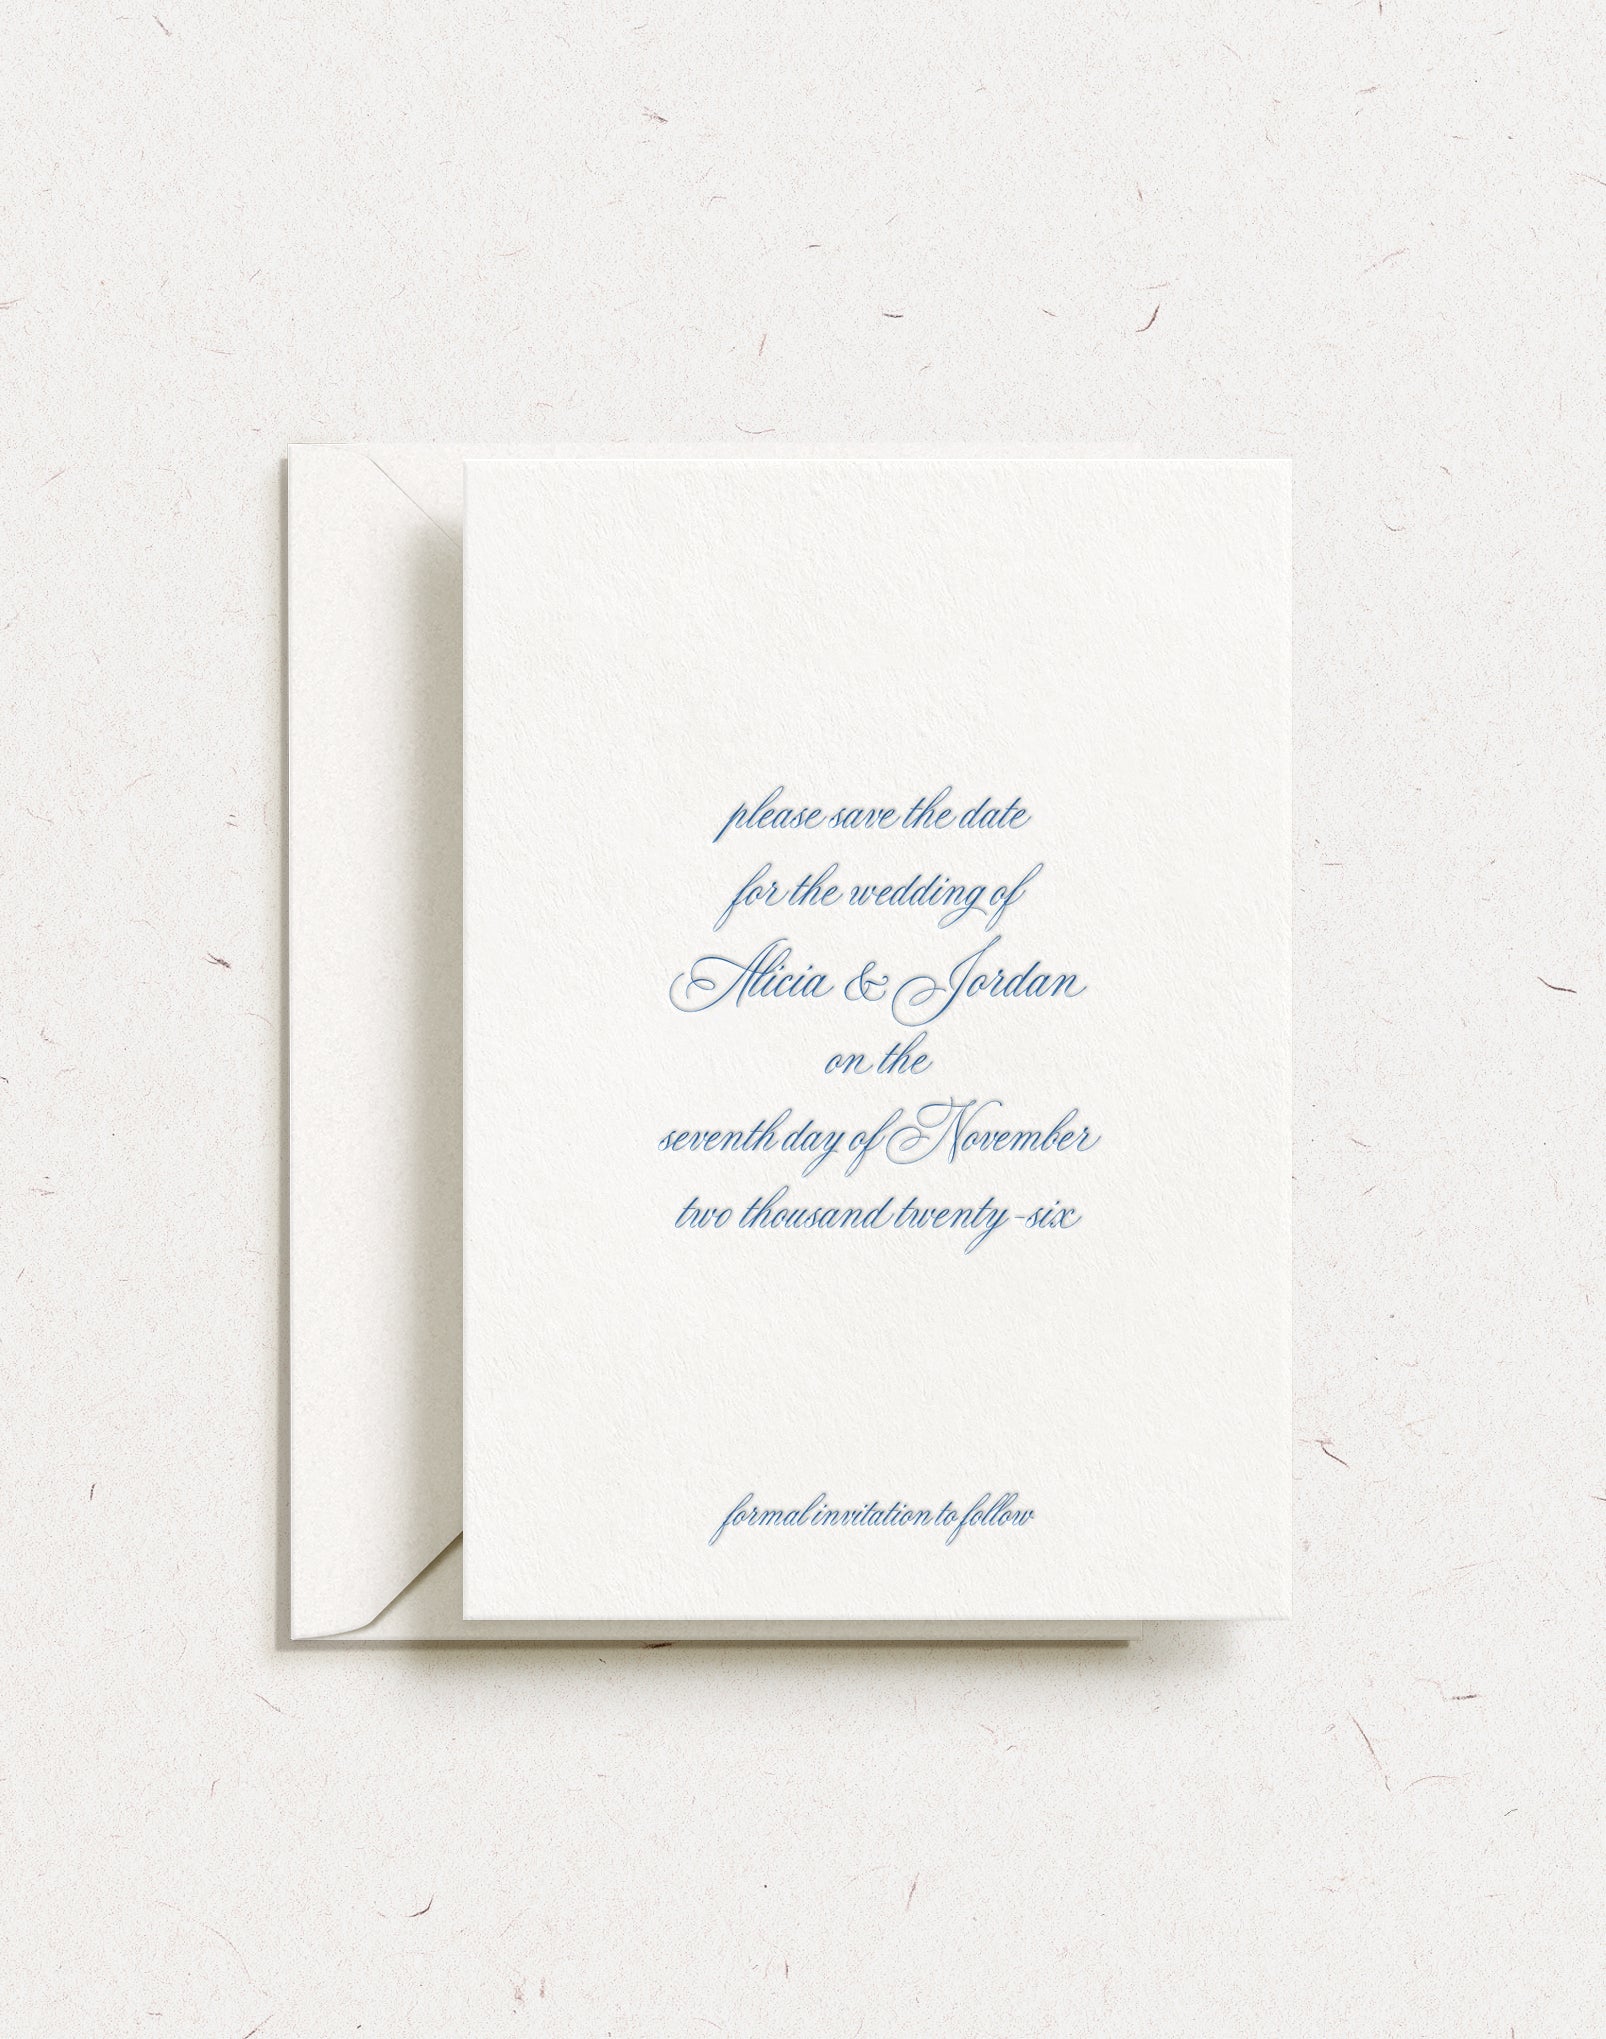 please save the date
for the wedding of
Alicia & Jordan
on the
seventh day of November
two thousand twenty-six
formal invitation to follow